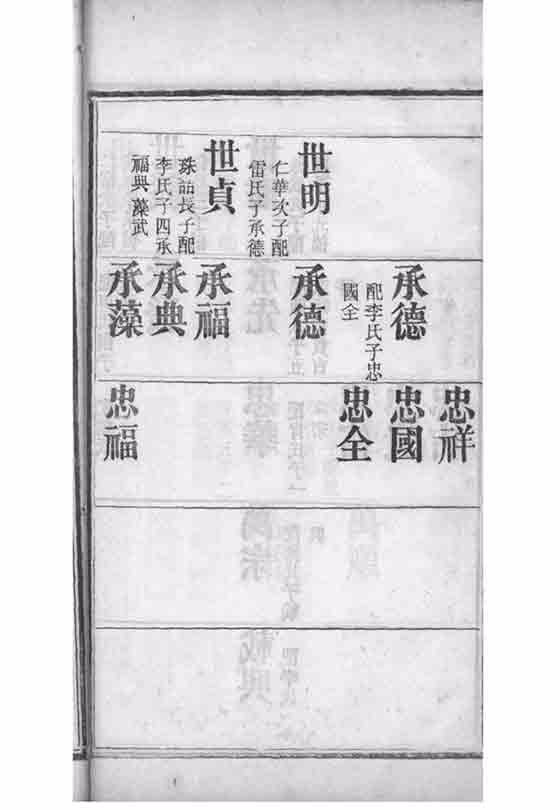 世明
仁華次子配
雷氏子承德
世貞
珠喆長子配
李氏子四承
福典藻武
承德
配李氏子忠
國全
承德
承福
承典
承藻
忠祥
忠國
忠全
忠福